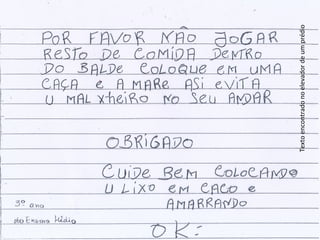 POR FAVOR NÃO JOGAR
RESTO DE COMIDA DENTRO
DO BALDE COLOQUE EM UMA
CAÇA E AMARE ASi EViTA
U MAL XheiRO NO SeU ANDAR
OBRiGADO
CUiDE BEM COLOCANDO
U LiXO EM CACO e
AMARRANDO
3º ano
do Ensino Médio
OK:
Texto encontrado no elevador de um prédio